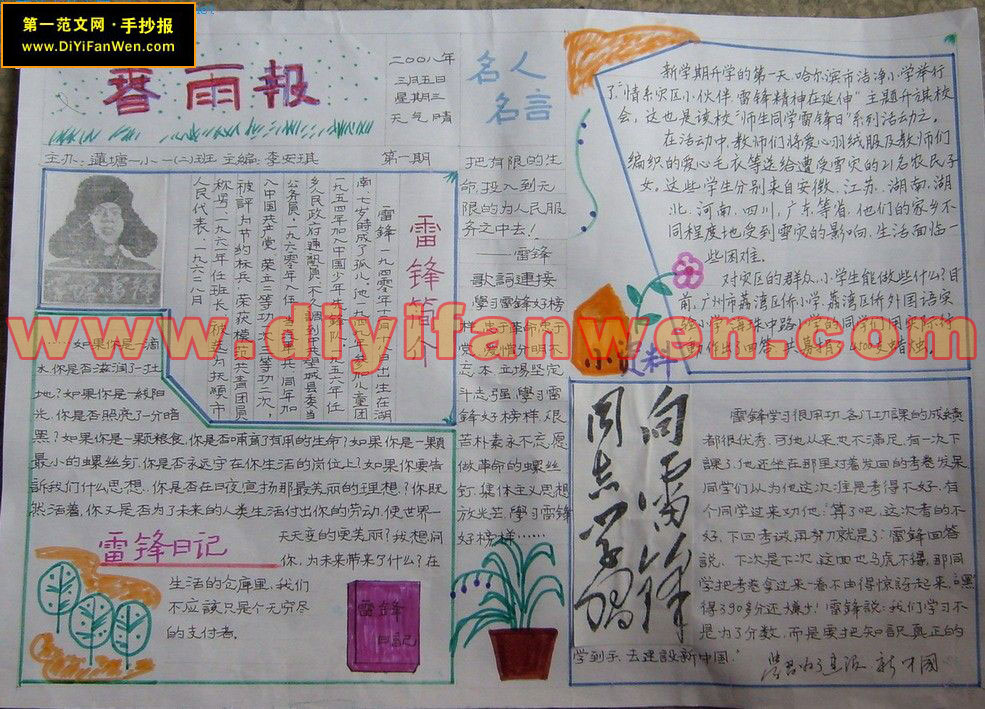 第一范文网·手抄报
www.DiYiFanWen.com
春雨報
二〇〇八年
三月五日
星期三
天气晴
主办:蓮塘一小一(二)班 主编:李安琪
第一期
名人
名言
把有限的生
命,投入到无
限的为人民服
务之中去!
——雷锋
雷锋简介
雷锋,一九四〇年十二月
南,七岁时成了孤儿。
一九五四年加入中国少年先锋队,一九五六年任
乡人民政府通讯员,不久調到中共望城县委当
公务员,一九六〇年入伍,当
入中国共产党,荣立二等功一次,三等功二次,
被評为节約标兵,荣获模范共青团员
称号,一九六一年任班长,被选为抚顺市
人民代表,一九六二年八月
如果你是一滴
水,你是否滋润了一
地?如果你是一線阳
光,你是否照亮了一分暗
黑?如果你是一颗粮食,你是否哺育了有用的生命?如果你是一顆
最小的螺丝钉,你是否永远守在你生活的岗位上?如果你要告
訴我们什么思想,你是否在日夜宣扬那最美丽的理想?你既
然活着,你又是否为了未来的人类生活付出你的劳动,使世界一
天天变的更美丽?我想問
你,为未来带来了什么?在
生活的仓庫里,我们
不应該只是个无穷尽
的支付者。
雷锋日记
雷锋
日記
歌詞連接
學习雷锋好榜
样,忠于革命忠于
党,爱憎分明不
忘本,立場坚定
斗志强,學习雷
锋好榜样,艰
苦朴素永不忘,愿
做革命的螺丝
钉,集体主义思想
放光芒,學习雷锋
好榜样……
新学期开学的第一天,哈尔滨市洁净小学举行
了"情系灾区小伙伴,雷锋精神在延伸"主题升旗校
会,这也是该校"师生同学雷锋日"系列活动之一。
在活动中,教师们将爱心羽绒服及教师们
编织的爱心毛衣等送给遭受雪灾的21名农民子
女,这些学生分别来自安徽、江苏、湖南、湖
北、河南、四川、广东等省,他们的家乡不
同程度地受到雪灾的影响,生活面临一
些困难。
对灾区的群众,小学生能做些什么?目
前,广州市荔湾区侨小学、荔湾区侨外国语实
小資料
www.diyifanwen.com
向雷锋
同志学习
雷锋学习很用功,各门功課的成績
都很优秀,可他从来也不满足,有一次下
課了,他还坐在那里对着发回的考卷发呆,
同学们以为他这次准是考得不好,有
个同学过来劝他:"算了吧,这次考的不
好,下回考試再努力就是了"雷锋回答
說:"下次是下次,这回也马虎不得,那同
学把考卷拿过来一看不由得惊訝起来,"嘿,
得了90多分还嫌少!"雷锋說:"我们学习不
是为了分数,而是要把知識真正的
学到手,去建設新中国。"